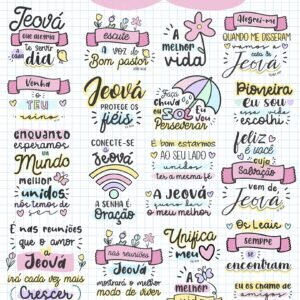 Jeová
que alegria
te servir
cada dia
escute
A voz do
Bom pastor
A
melhor
vida
Alegrei-me
QUANDO ME DISSERAM
vamos a casa
de Jeová
Venha
o
TEU
reino
Jeová
PROTEGE OS
fiéis
Faça
Chuva ou
SOL Eu vou
Perseverar
Pioneira
EU SOU
essa vida
escolhi
enquanto
esperamos o
Mundo
melhor
unidos
nós temos de
ser
CONECTE-SE
a Jeová
A SENHA É
Oração
É bom estarmos
AO SEU LADO
unidos
ter a mesma fé
A Jeová
quero dar
o meu melhor
feliz
é você
cuja
SALVAÇÃO
vem de
Jeová
É nas reuniões
que o amor
a Jeová
irá cada vez mais
Crescer
nas reuniões
Jeová
mostra o melhor
modo de viver
Unifica
meu
Os Leais
sempre
se
encontram